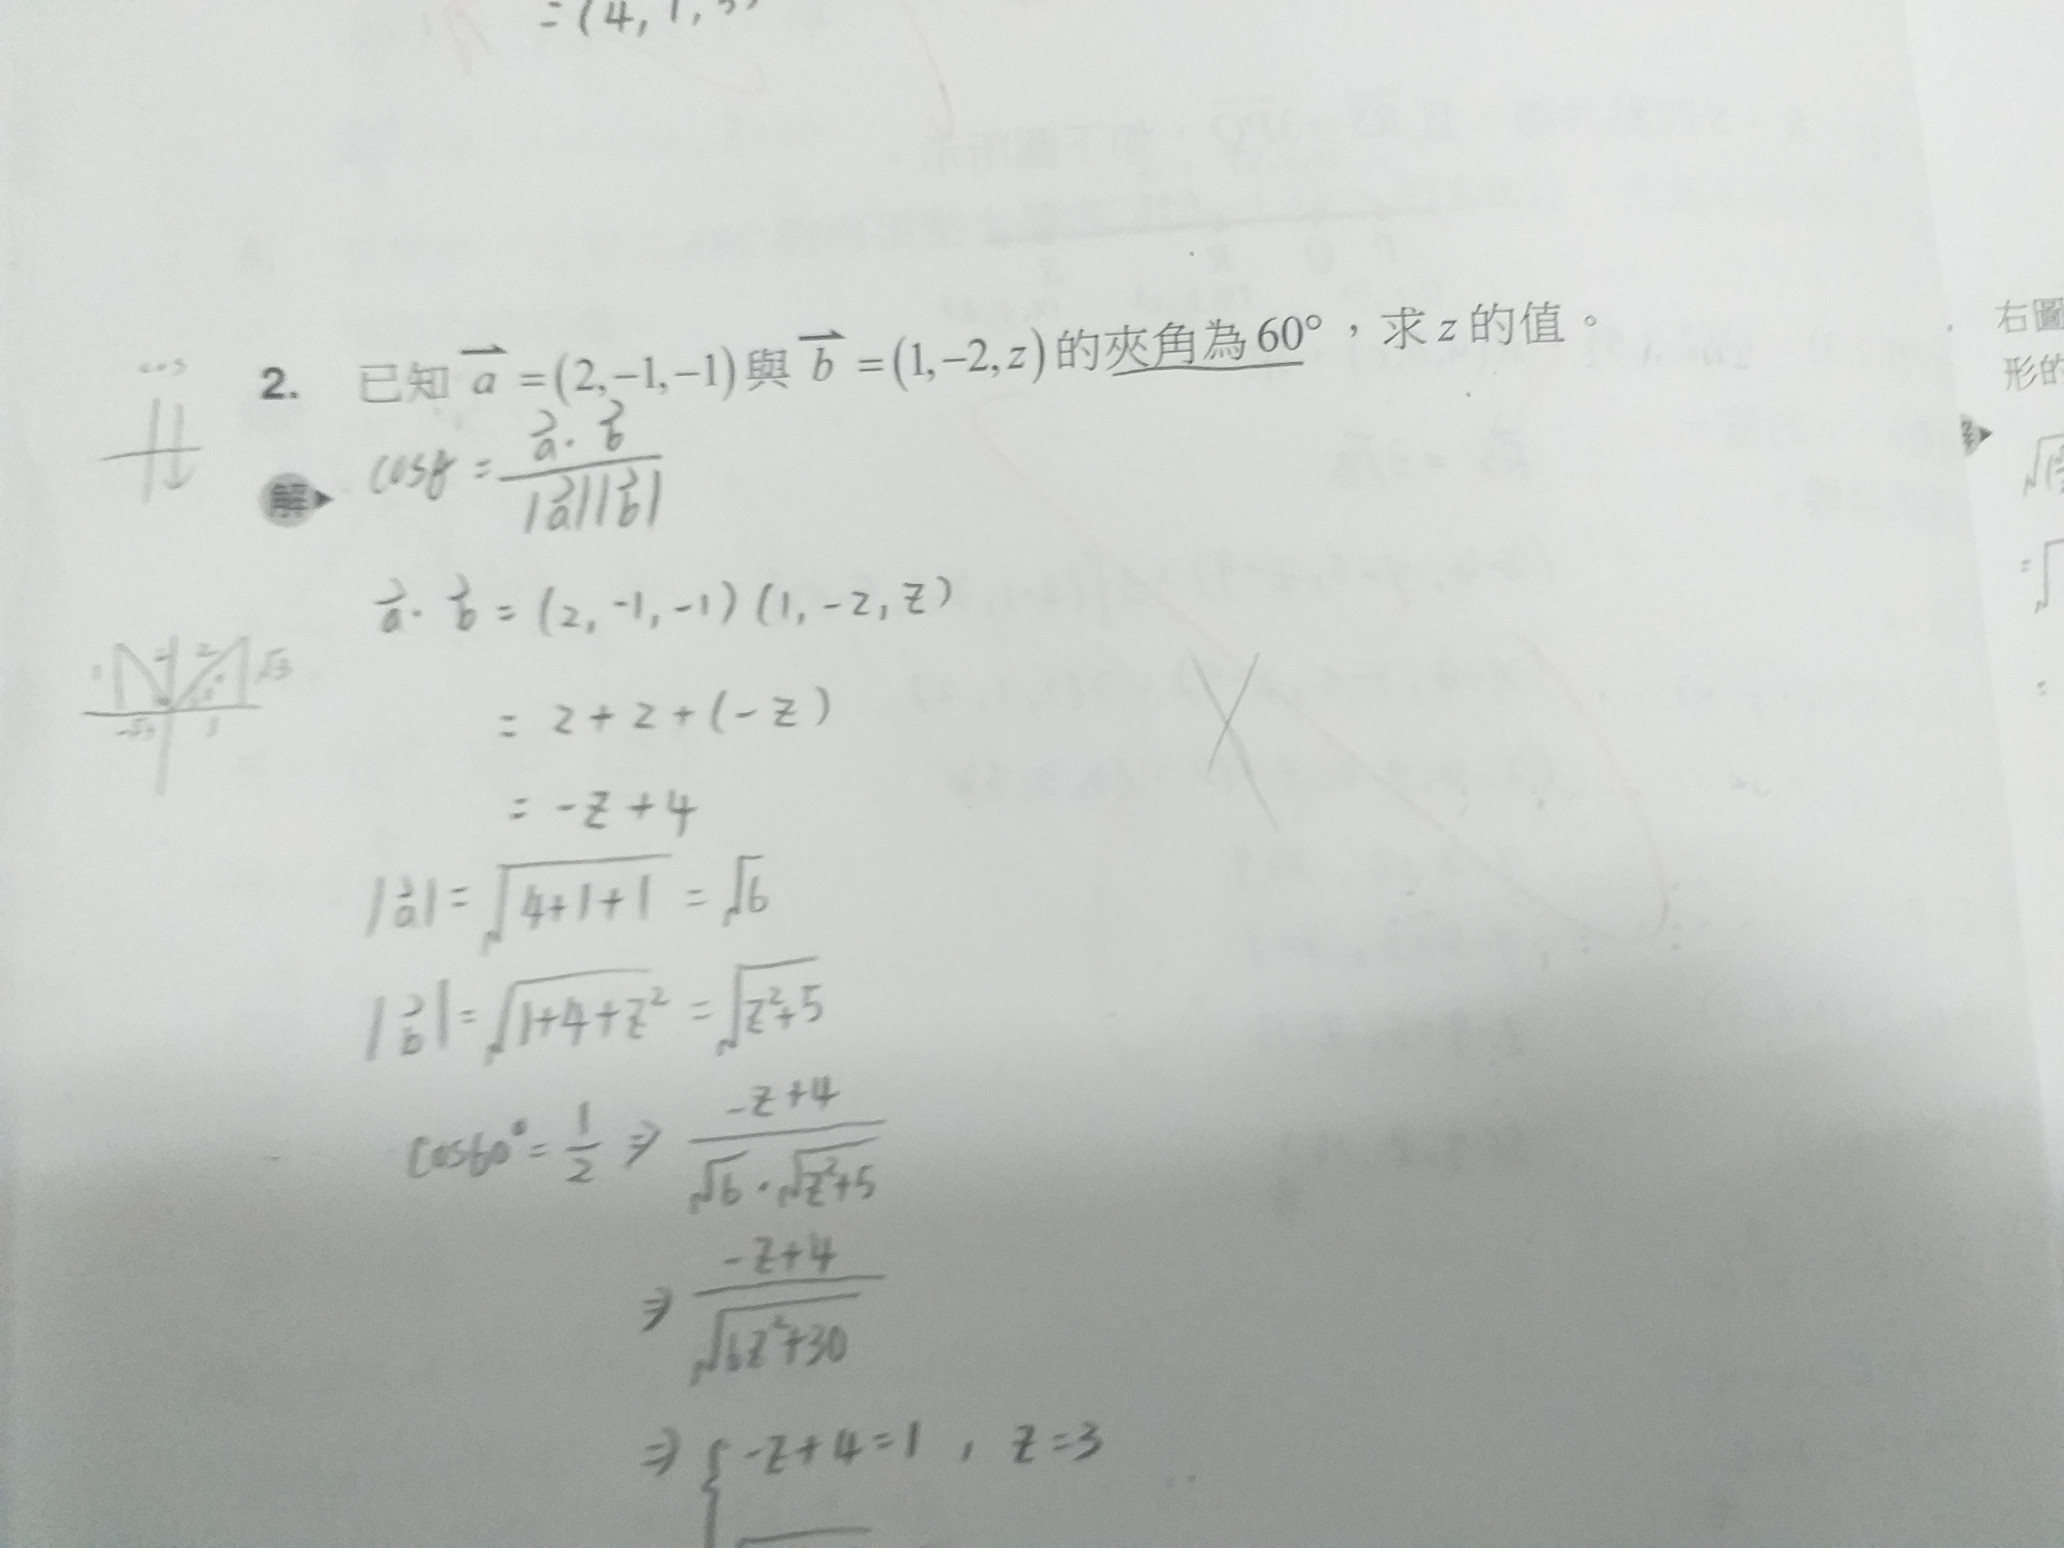 = (4, 1,
2. 已知 a⃗ = (2,−1,−1) 與 b⃗ = (1,−2, z) 的夾角為 60°，求 z 的值。
右圖
形的
cos
解
cosθ = a⃗・b⃗ / |a⃗||b⃗|
a⃗・b⃗ = (2, -1, -1) (1, -2, z)
= 2 + 2 + (-z)
= -z + 4
|a⃗| = √(4+1+1) = √6
|b⃗| = √(1+4+z²) = √(z²+5)
cos60° = 1/2 ⇒ (-z+4) / (√6・√(z²+5))
⇒ (-z+4) / √(6z²+30)
⇒ { -z+4=1 , z=3